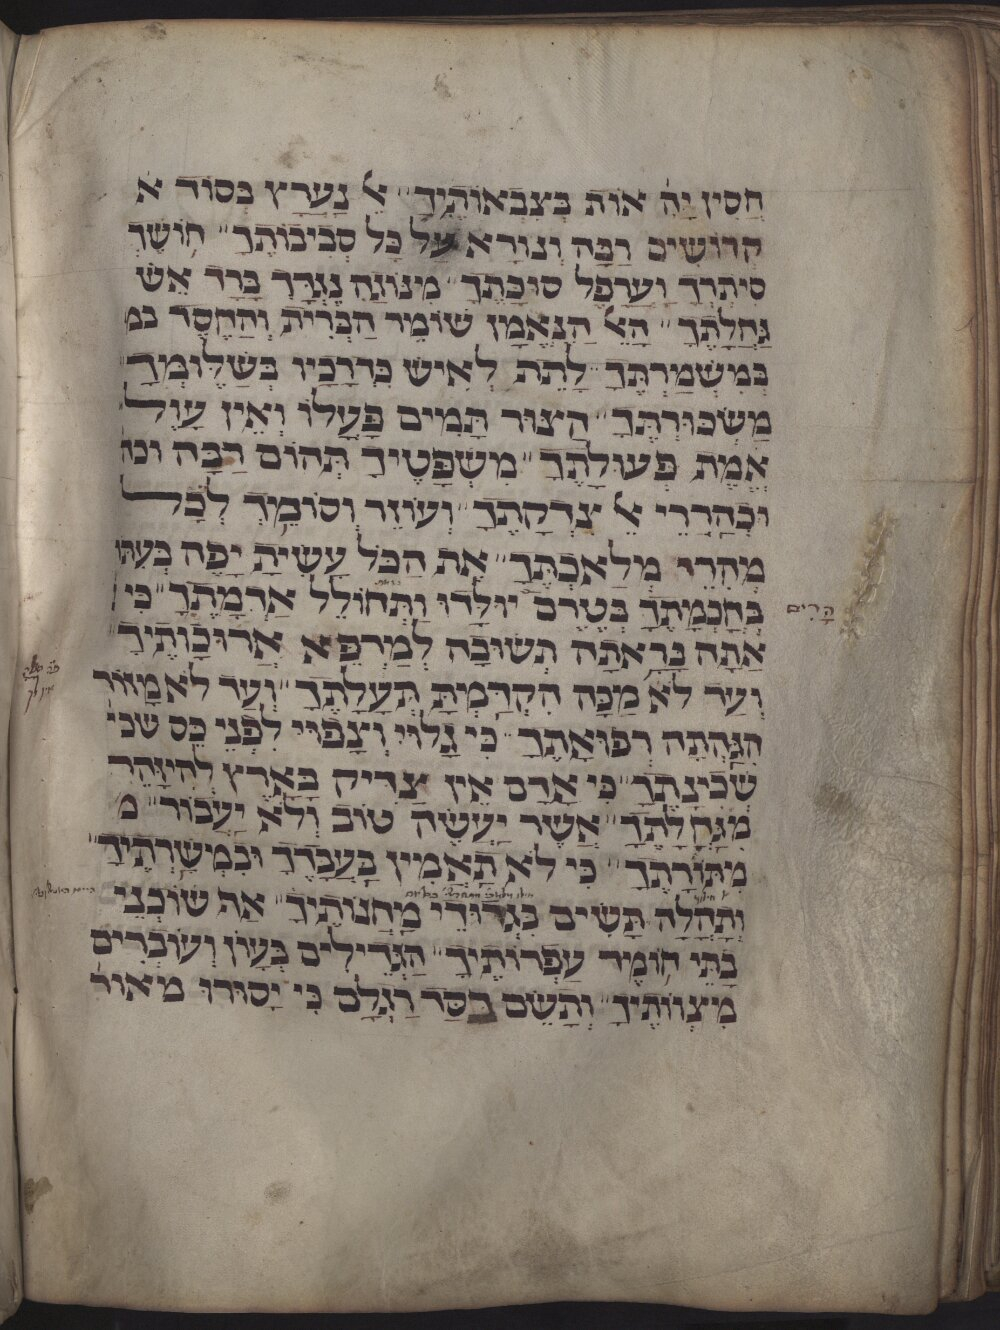 חֲסִין יָהּ אוֹת בְּצִבְאוֹתֶיךָ״ אֵל נַעֲרָץ בְּסוֹד א
קְדוֹשִׁים רַבָּה וְנוֹרָא עַל כָּל סְבִיבוֹתֶךָ״ חוֹשֶׁךְ
סִיתְרְךָ וַעֲרָפֶל סוּכָּתֶךָ״ מִנּוֹגַהּ נֶגְדְּךָ בָּרָד אֵשׁ
גַּחַלְתֶּךָ״ הָאֵל הַנֶּאֱמָן שׁוֹמֵר הַבְּרִית וְהַחֶסֶד במ
בְּמִשְׁמַרְתֶּךָ״ לָתֵת לְאִישׁ כִּדְרָכָיו בְּשִׁלּוּמְךָ
מַשְׂכּוּרְתֶּךָ״ הַצּוּר תָּמִים פָּעֳלוֹ וְאֵין עָוֶל
אֱמֶת פְּעוּלָּתֶךָ״ מִשְׁפָּטֶיךָ תְּהוֹם רַבָּה וכה
וּכְהַרְרֵי אֵל צִדְקָתֶךָ״ וְעוֹזֵר וְסוֹמֵךְ לְכָל
מְלַאכְתֶּךָ״ אֶת הַכֹּל עָשִׂיתָ יָפֶה בְּעִתּוֹ
בְּחָכְמָתֶךָ בְּטֶרֶם יוּלָּדוּ וַתְּחוֹלֵל אַדְמָתֶךָ״ כִּי
הָרִים
אַתָּה בָּרָאתָה תְשׁוּבָה לְמַרְפֵּא אֲרוּכוֹתֶיךָ״
וְעַד לֹא מַכָּה הִקְדַּמְתָּ תְּעָלָתֶךָ״ וְעַד לֹא מָזוֹר
הִגַּהְתָּה רְפוּאָתֶךָ״ כִּי גָלוּי וְצָפוּי לִפְנֵי כֵּס שכי
שְׁכִינָתֶךָ״ כִּי אָדָם אֵין צַדִּיק בָּאָרֶץ לְהִיזָּהֵר
מִגַּחַלְתֶּךָ״ אֲשֶׁר יַעֲשֶׂה טוֹב וְלֹא יַעֲבוֹר״ מ
מִתּוֹרָתֶךָ״ כִּי לֹא תַאֲמִין בַּעֲבָדֶךָ וּבִמְשָׁרְתֶיךָ״
וְתָהֳלָה תָּשִׂים בִּגְדוּדֵי מַחֲנוֹתֶיךָ״ אַף שׁוֹכְנֵי
בָּתֵּי חוֹמֶר עַפְרוֹתֶיךָ״ הַגְּדֵילִים בְּעָוֹן וְעוֹבְרִים
מִיצְוֹותֶיךָ״ וְתָשֵׂם בַּסַּד רַגְלָם כִּי יָסוּרוּ מֵאוֹר